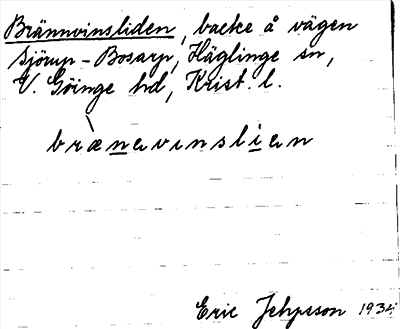 Brännvinsliden, backe å vägen
Sjörup - Bosarp, Häglinge sn,
V. Göinge hd, Krist. l.
brænəvinsliən
Eric Jehpsson 1934